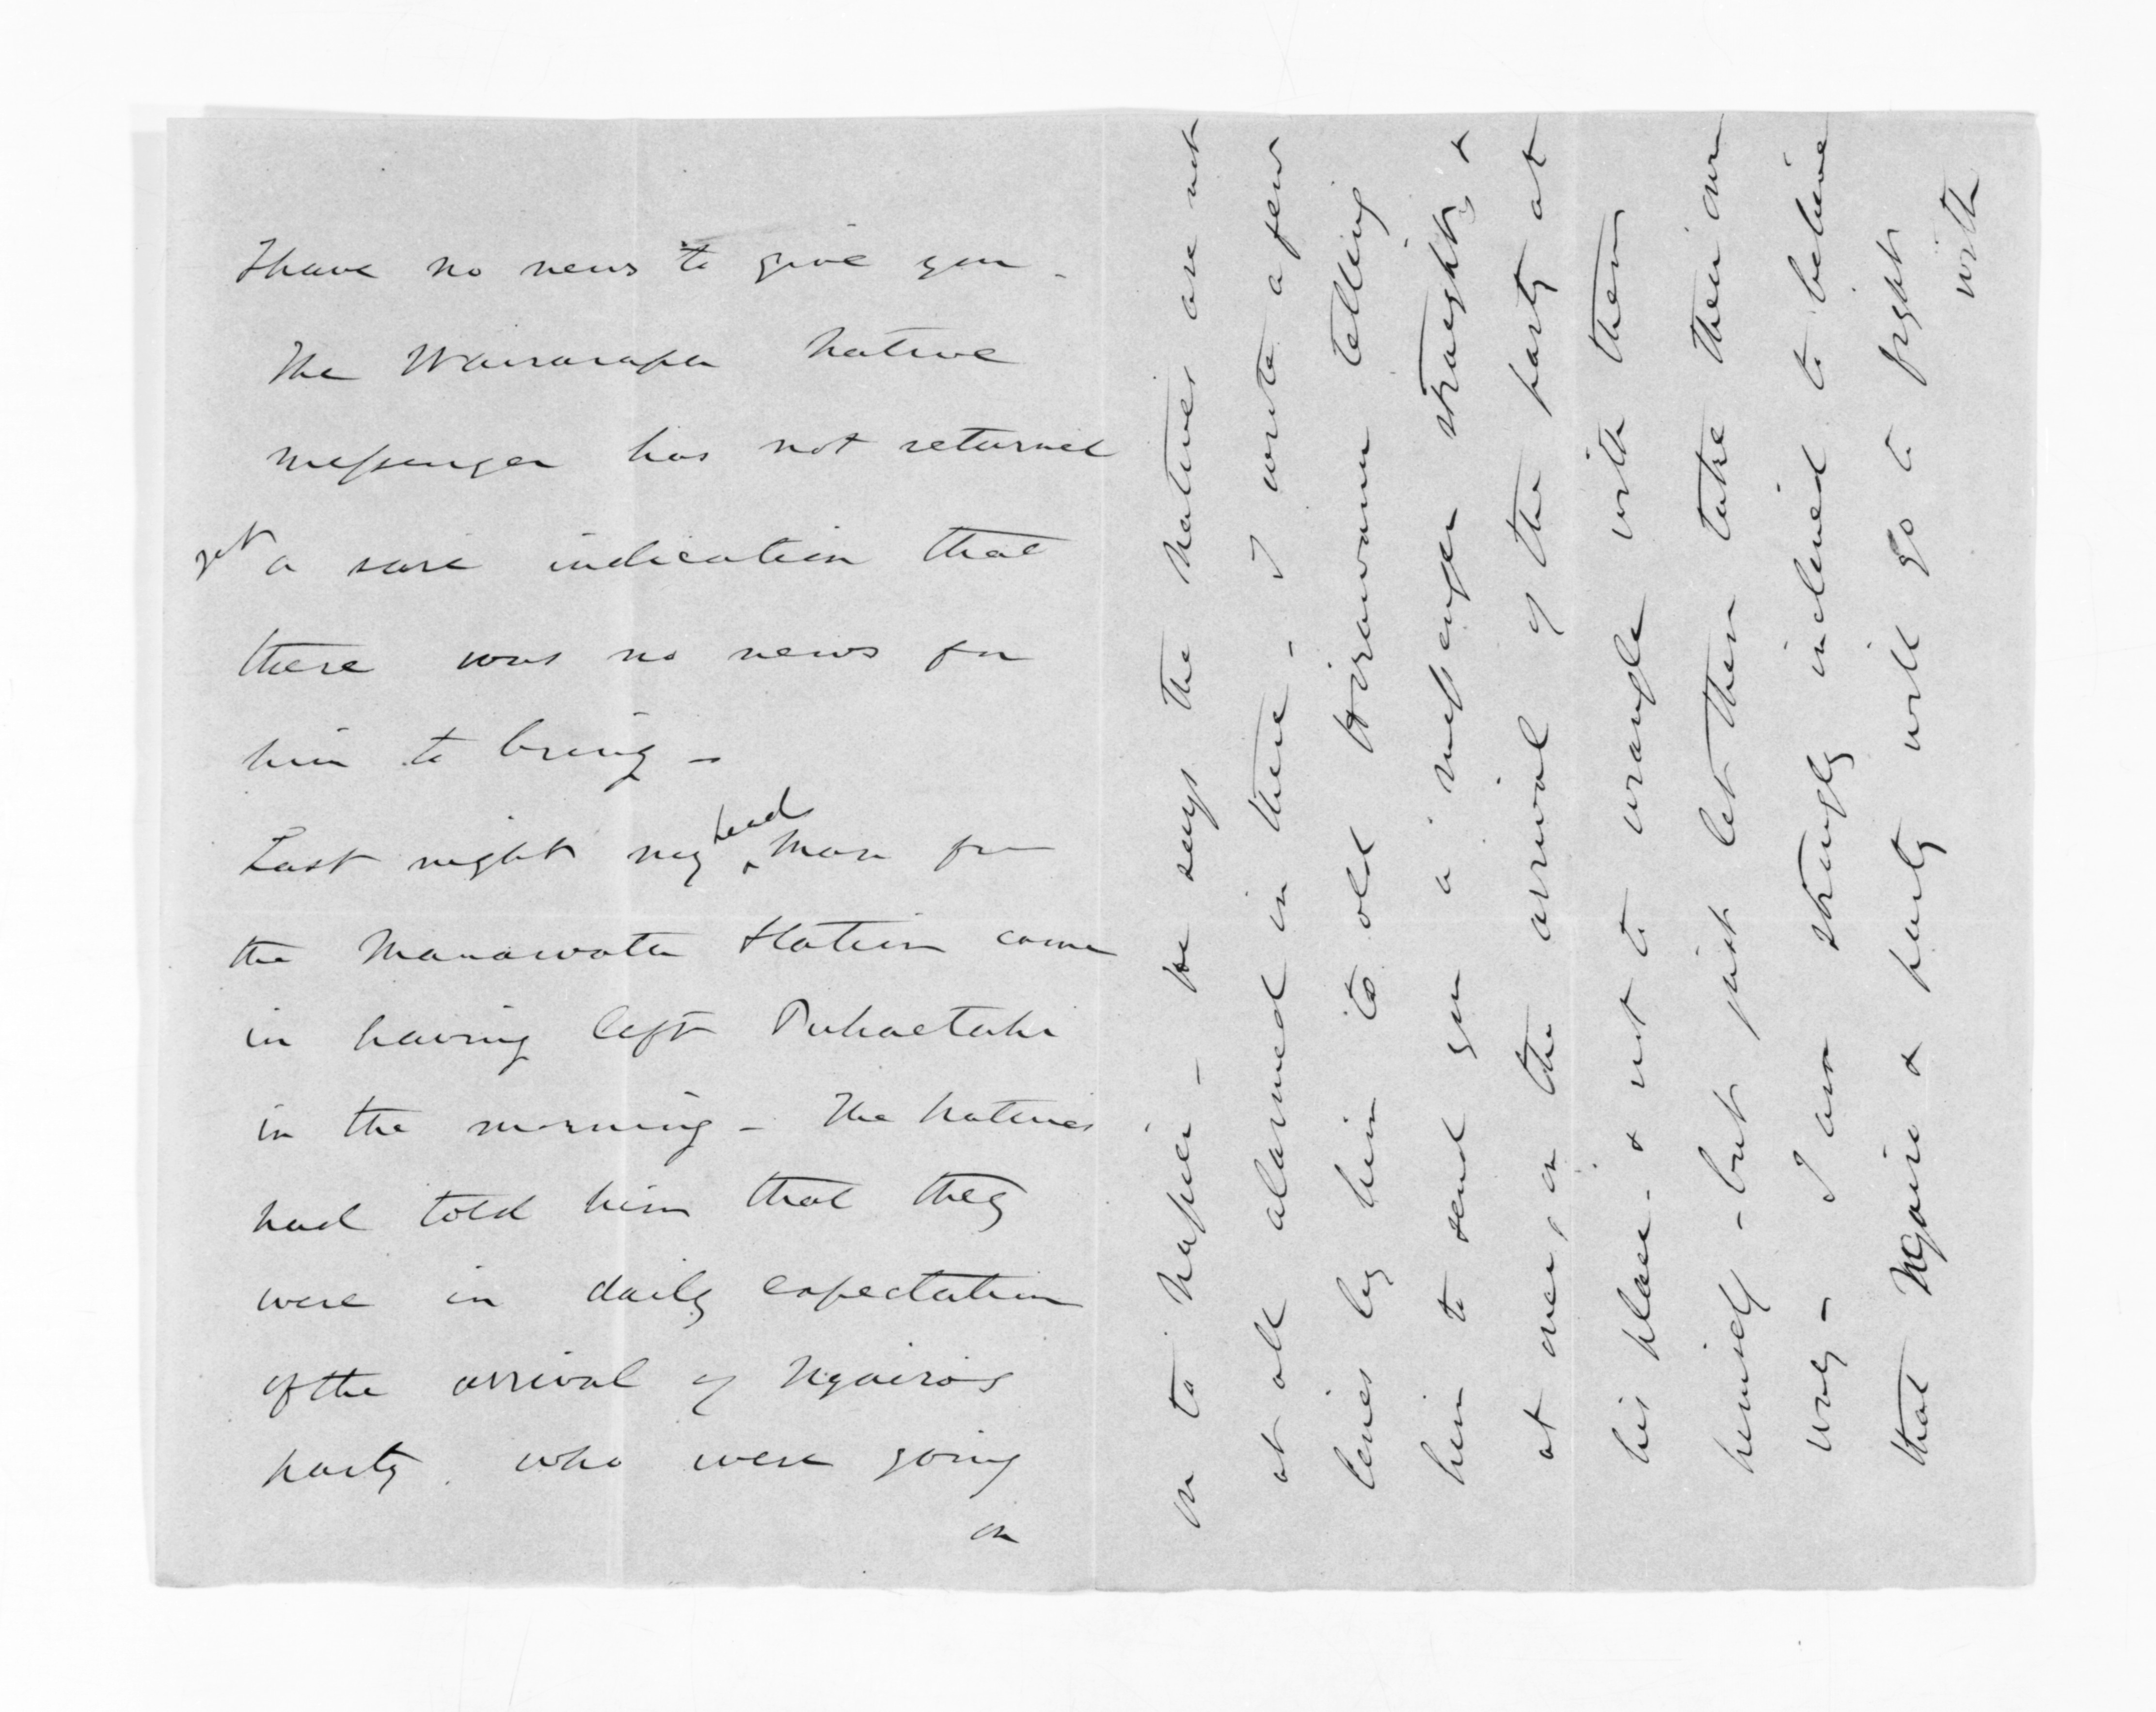 I have no news to give you -
The Wairarapa Native
messenger has not returned
yet a sure indication that
there was no news for
him to bring -
Last night my head man fr
the Manawatu Station came
in having left Puhaetahi
in the morning - The Natives
had told him that they
were in daily expectation
of the arrival of Ngairo's
party. who were going
on
on to Napier - he says the Natives are not
at all alarmed in there - I wrote a few
lines by him to old Hirawanu telling
him to send you a messenger straight, &
at once, on the arrival of the party at
his place - & not to wrangle with them
himself - but just let them take their own
way - I am strongly inclined to believe
that Ngairo & party will go to fight
with